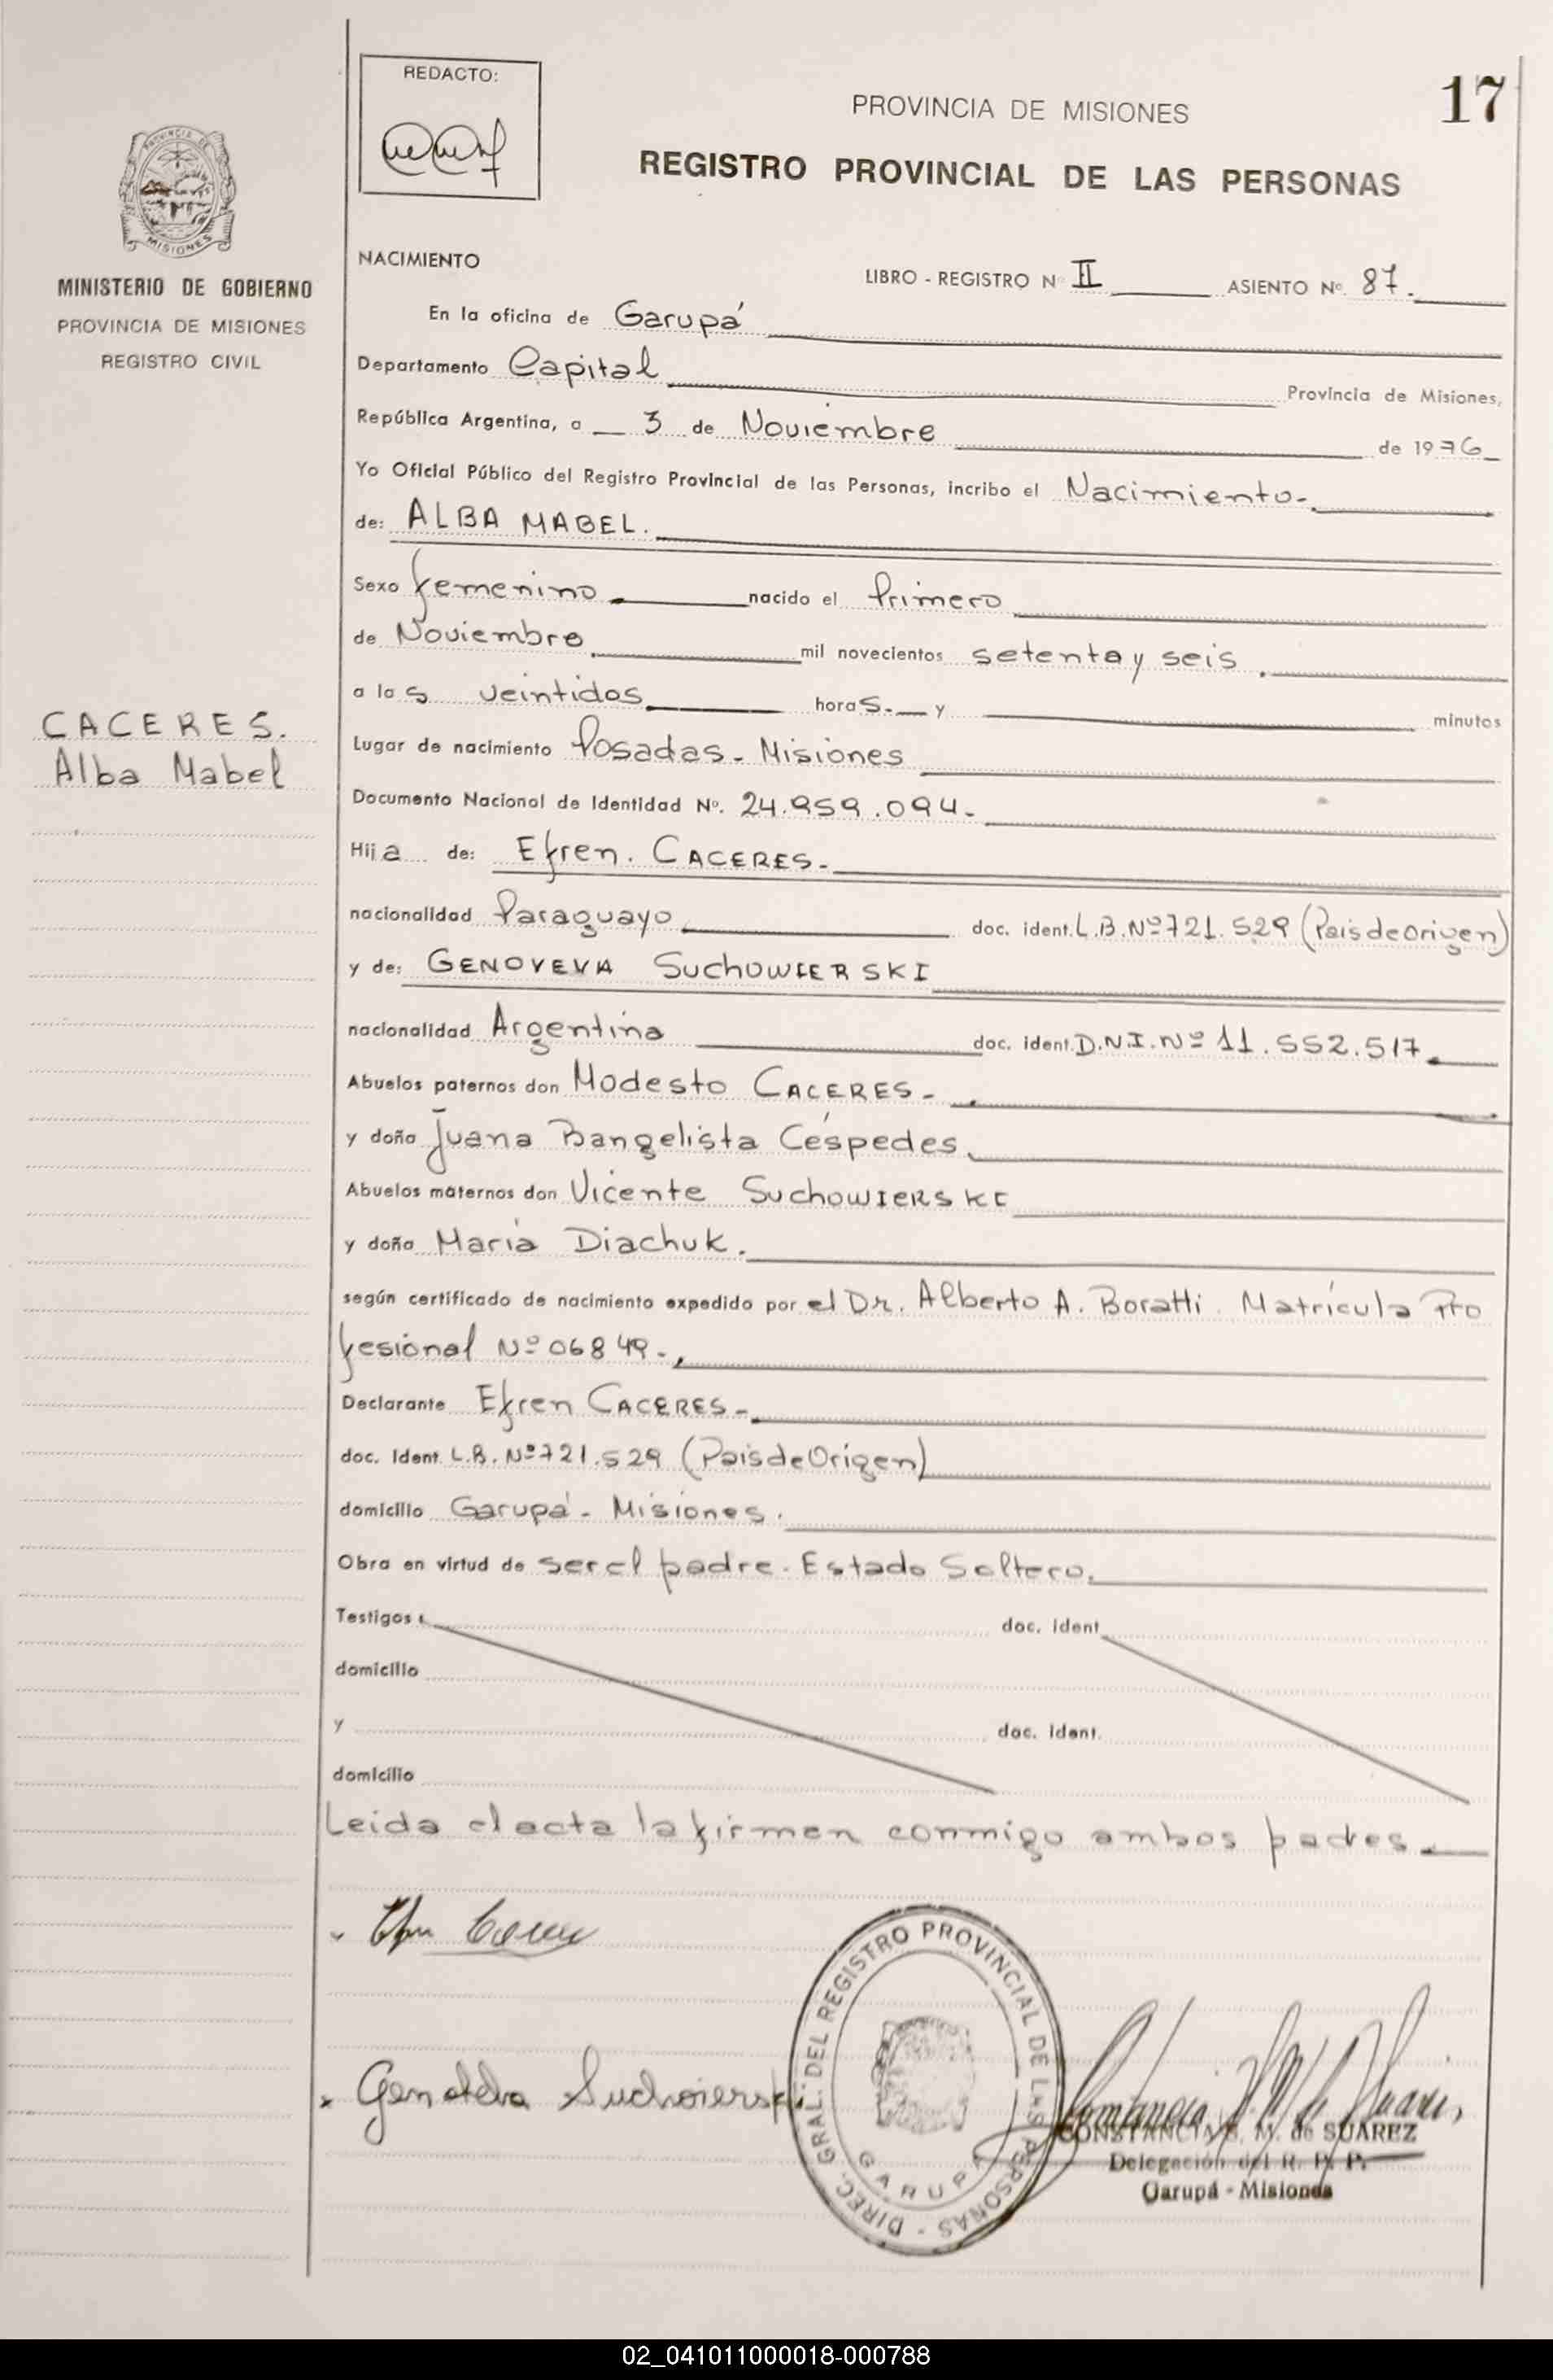 REDACTO:
PROVINCIA DE MISIONES
17
REGISTRO PROVINCIAL DE LAS PERSONAS
PROVINCIA DE
MISIONES
MINISTERIO DE GOBIERNO
PROVINCIA DE MISIONES
REGISTRO CIVIL
CACERES.
Alba Mabel
NACIMIENTO
LIBRO - REGISTRO Nº II ASIENTO Nº 87.
En la oficina de Garupá
Departamento Capital Provincia de Misiones,
República Argentina, a 3 de Noviembre de 1976
Yo Oficial Público del Registro Provincial de las Personas, incribo el Nacimiento.
de: ALBA MABEL.
Sexo femenino nacido el Primero
de Noviembre mil novecientos setenta y seis
a las veintidos horas. y minutos
Lugar de nacimiento Posadas - Misiones
Documento Nacional de Identidad Nº. 24.959.094.
Hija de: Efren. CACERES.
nacionalidad Paraguayo doc. ident. L.B. Nº 721.529 (Pais de Origen)
y de: GENOVEVA SUCHOWIERSKI
nacionalidad Argentina doc. ident. D.N.I. Nº 11.552.517.
Abuelos paternos don Modesto CACERES.
y doña Juana Bangelista Céspedes.
Abuelos maternos don Vicente SUCHOWIERSKI
y doña María Diachuk.
según certificado de nacimiento expedido por el Dr. Alberto A. Boratti. Matrícula Pro
fesional Nº 06849.
Declarante Efren CACERES.
doc. Ident. L.B. Nº 721.529 (Pais de Origen)
domicilio Garupá - Misiones.
Obra en virtud de ser el padre. Estado Soltero.
Testigos: doc. ident.
domicilio
y doc. ident.
domicilio
Leida el acta la firman conmigo ambos padres.
Genoveva Suchoierski
DIREC. GRAL. DEL REGISTRO PROVINCIAL DE LAS PERSONAS -
GARUPA
CONSTANCIA S. M. de SUAREZ
Delegación del R. P. P.
Garupá - Misiones
02_041011000018-000788